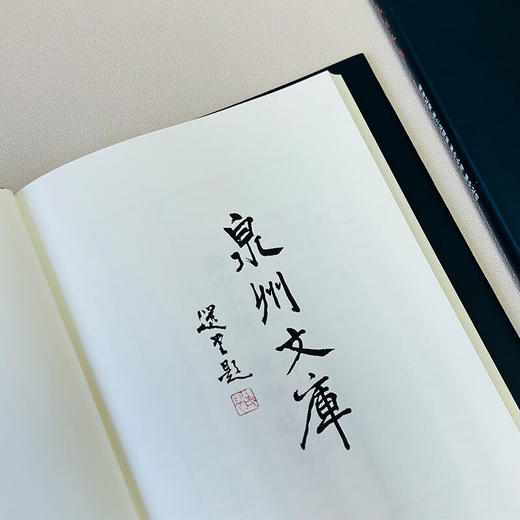 泉州文庫
選堂題